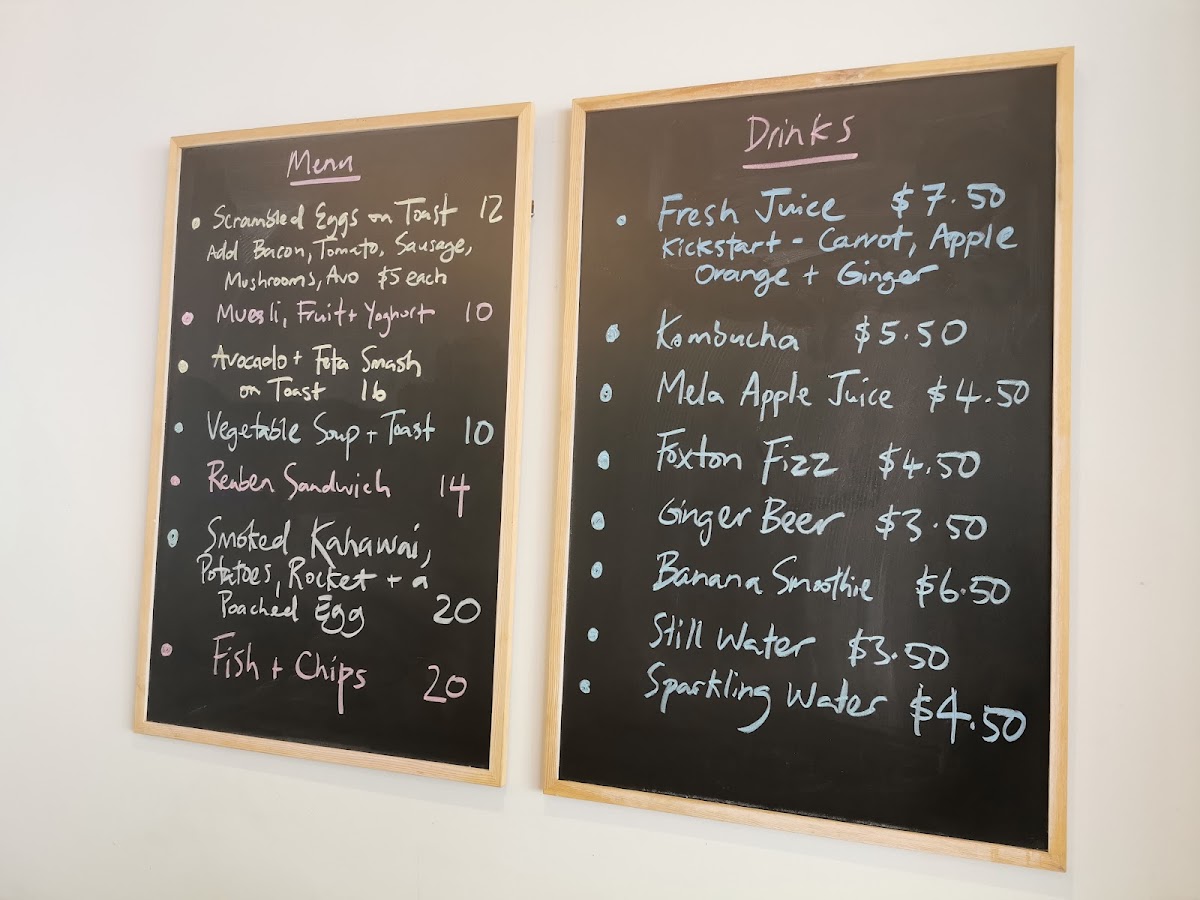 Menu
Scrambled Eggs on Toast 12
Add Bacon, Tomato, Sausage,
Mushrooms, Avo $5 each
Muesli, Fruit + Yoghurt 10
Avocado + Feta Smash
on Toast 16
Vegetable Soup + Toast 10
Reuben Sandwich 14
Smoked Kahawai,
Potatoes, Rocket + a
Poached Egg 20
Fish + Chips 20
Drinks
Fresh Juice $7.50
Kickstart - Carrot, Apple
Orange + Ginger
Kombucha $5.50
Mela Apple Juice $4.50
Foxton Fizz $4.50
Ginger Beer $3.50
Banana Smoothie $6.50
Still Water $3.50
Sparkling Water $4.50